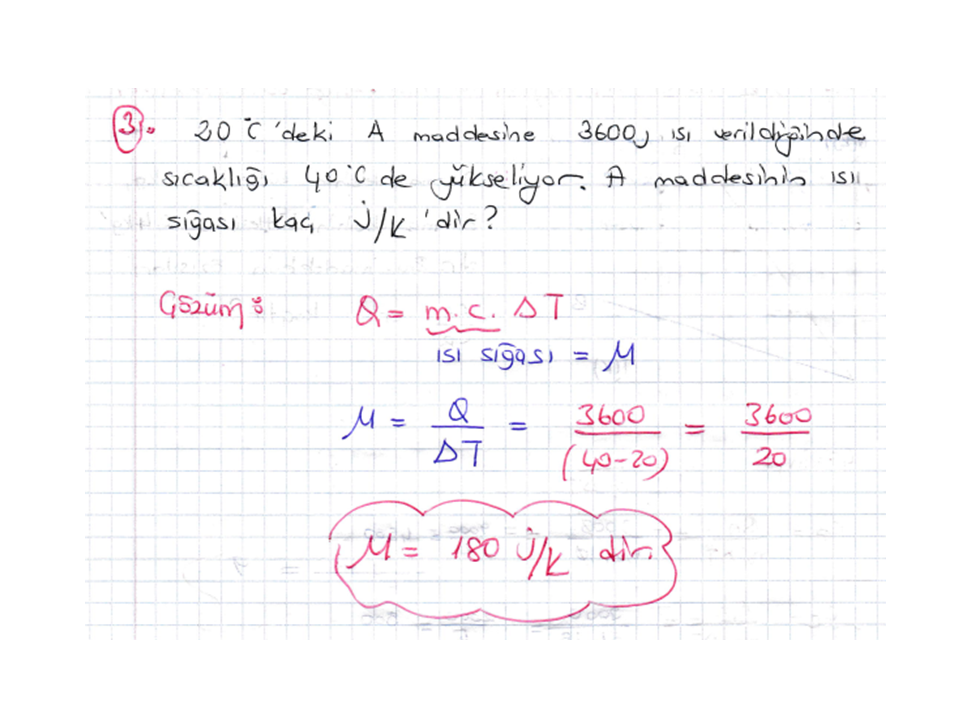 3. 20 °C 'deki A maddesine 3600 J ısı verildiğinde
sıcaklığı 40 °C de yükseliyor. A maddesinin ısı
sığası kaç J/K 'dir?
Çözüm: Q = m.c. ΔT
ısı sığası = M
M = Q/ΔT = 3600/(40-20) = 3600/20
M = 180 J/K dir.